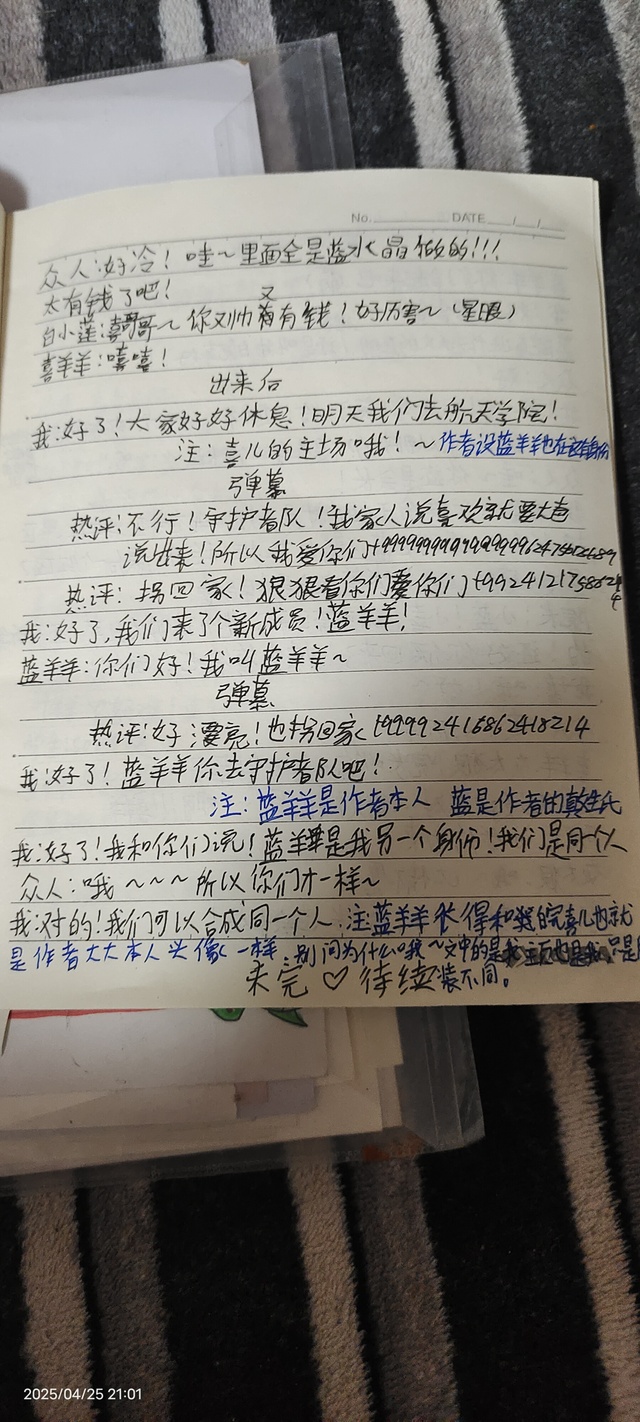 No. DATE / /
众人:好冷!哇~里面全是蓝水晶做的!!!
太有钱了吧!
又
白小莲:喜哥哥~你又帅有钱!好厉害~(星眼)
喜羊羊:嘻嘻!
出来后
我:好了!大家好好休息!明天我们去航天学院!
注:喜儿的主场哦!~作者设蓝羊羊也在
弹幕
热评:不行!守护者队!我家人说喜欢就要大色
说出来!所以我爱你们
热评:拐回家!狠狠看你们爱你们
我:好了,我们来了个新成员!蓝羊羊!
蓝羊羊:你们好!我叫蓝羊羊~
弹幕
热评:好漂亮!也拐回家
我:好了!蓝羊羊你去守护者队吧!
注:蓝羊羊是作者本人 蓝是作者的真姓氏
我:好了!我和你们说!蓝羊羊是我另一个身份!我们是同个人
众人:哦~~~所以你们才一样~
我:对的!我们可以合成同一个人.注蓝羊羊长得和我的喜儿也就
是作者大大本人头像一样.别问为什么哦~文中的是
未完♡待续装不同。
2025/04/25 21:01